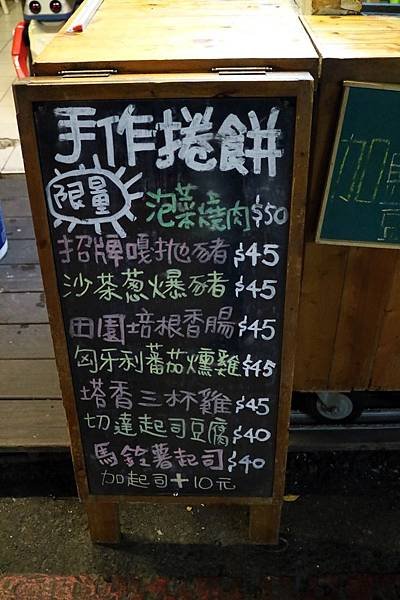 手作捲餅
限量
泡菜燒肉 $50
招牌嘎抛豬 $45
沙茶葱爆豬 $45
田園培根香腸 $45
匈牙利蕃茄燻雞 $45
塔香三杯雞 $45
切達起司豆腐 $40
馬鈴薯起司 $40
加起司+10元
加